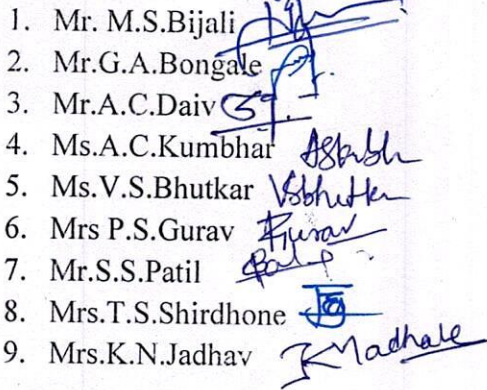 1. Mr. M.S.Bijali
2. Mr.G.A.Bongale
3. Mr.A.C.Daiv
4. Ms.A.C.Kumbhar
5. Ms.V.S.Bhutkar VSbhutkar
6. Mrs P.S.Gurav Gurav
7. Mr.S.S.Patil
8. Mrs.T.S.Shirdhone
9. Mrs.K.N.Jadhav Madhale